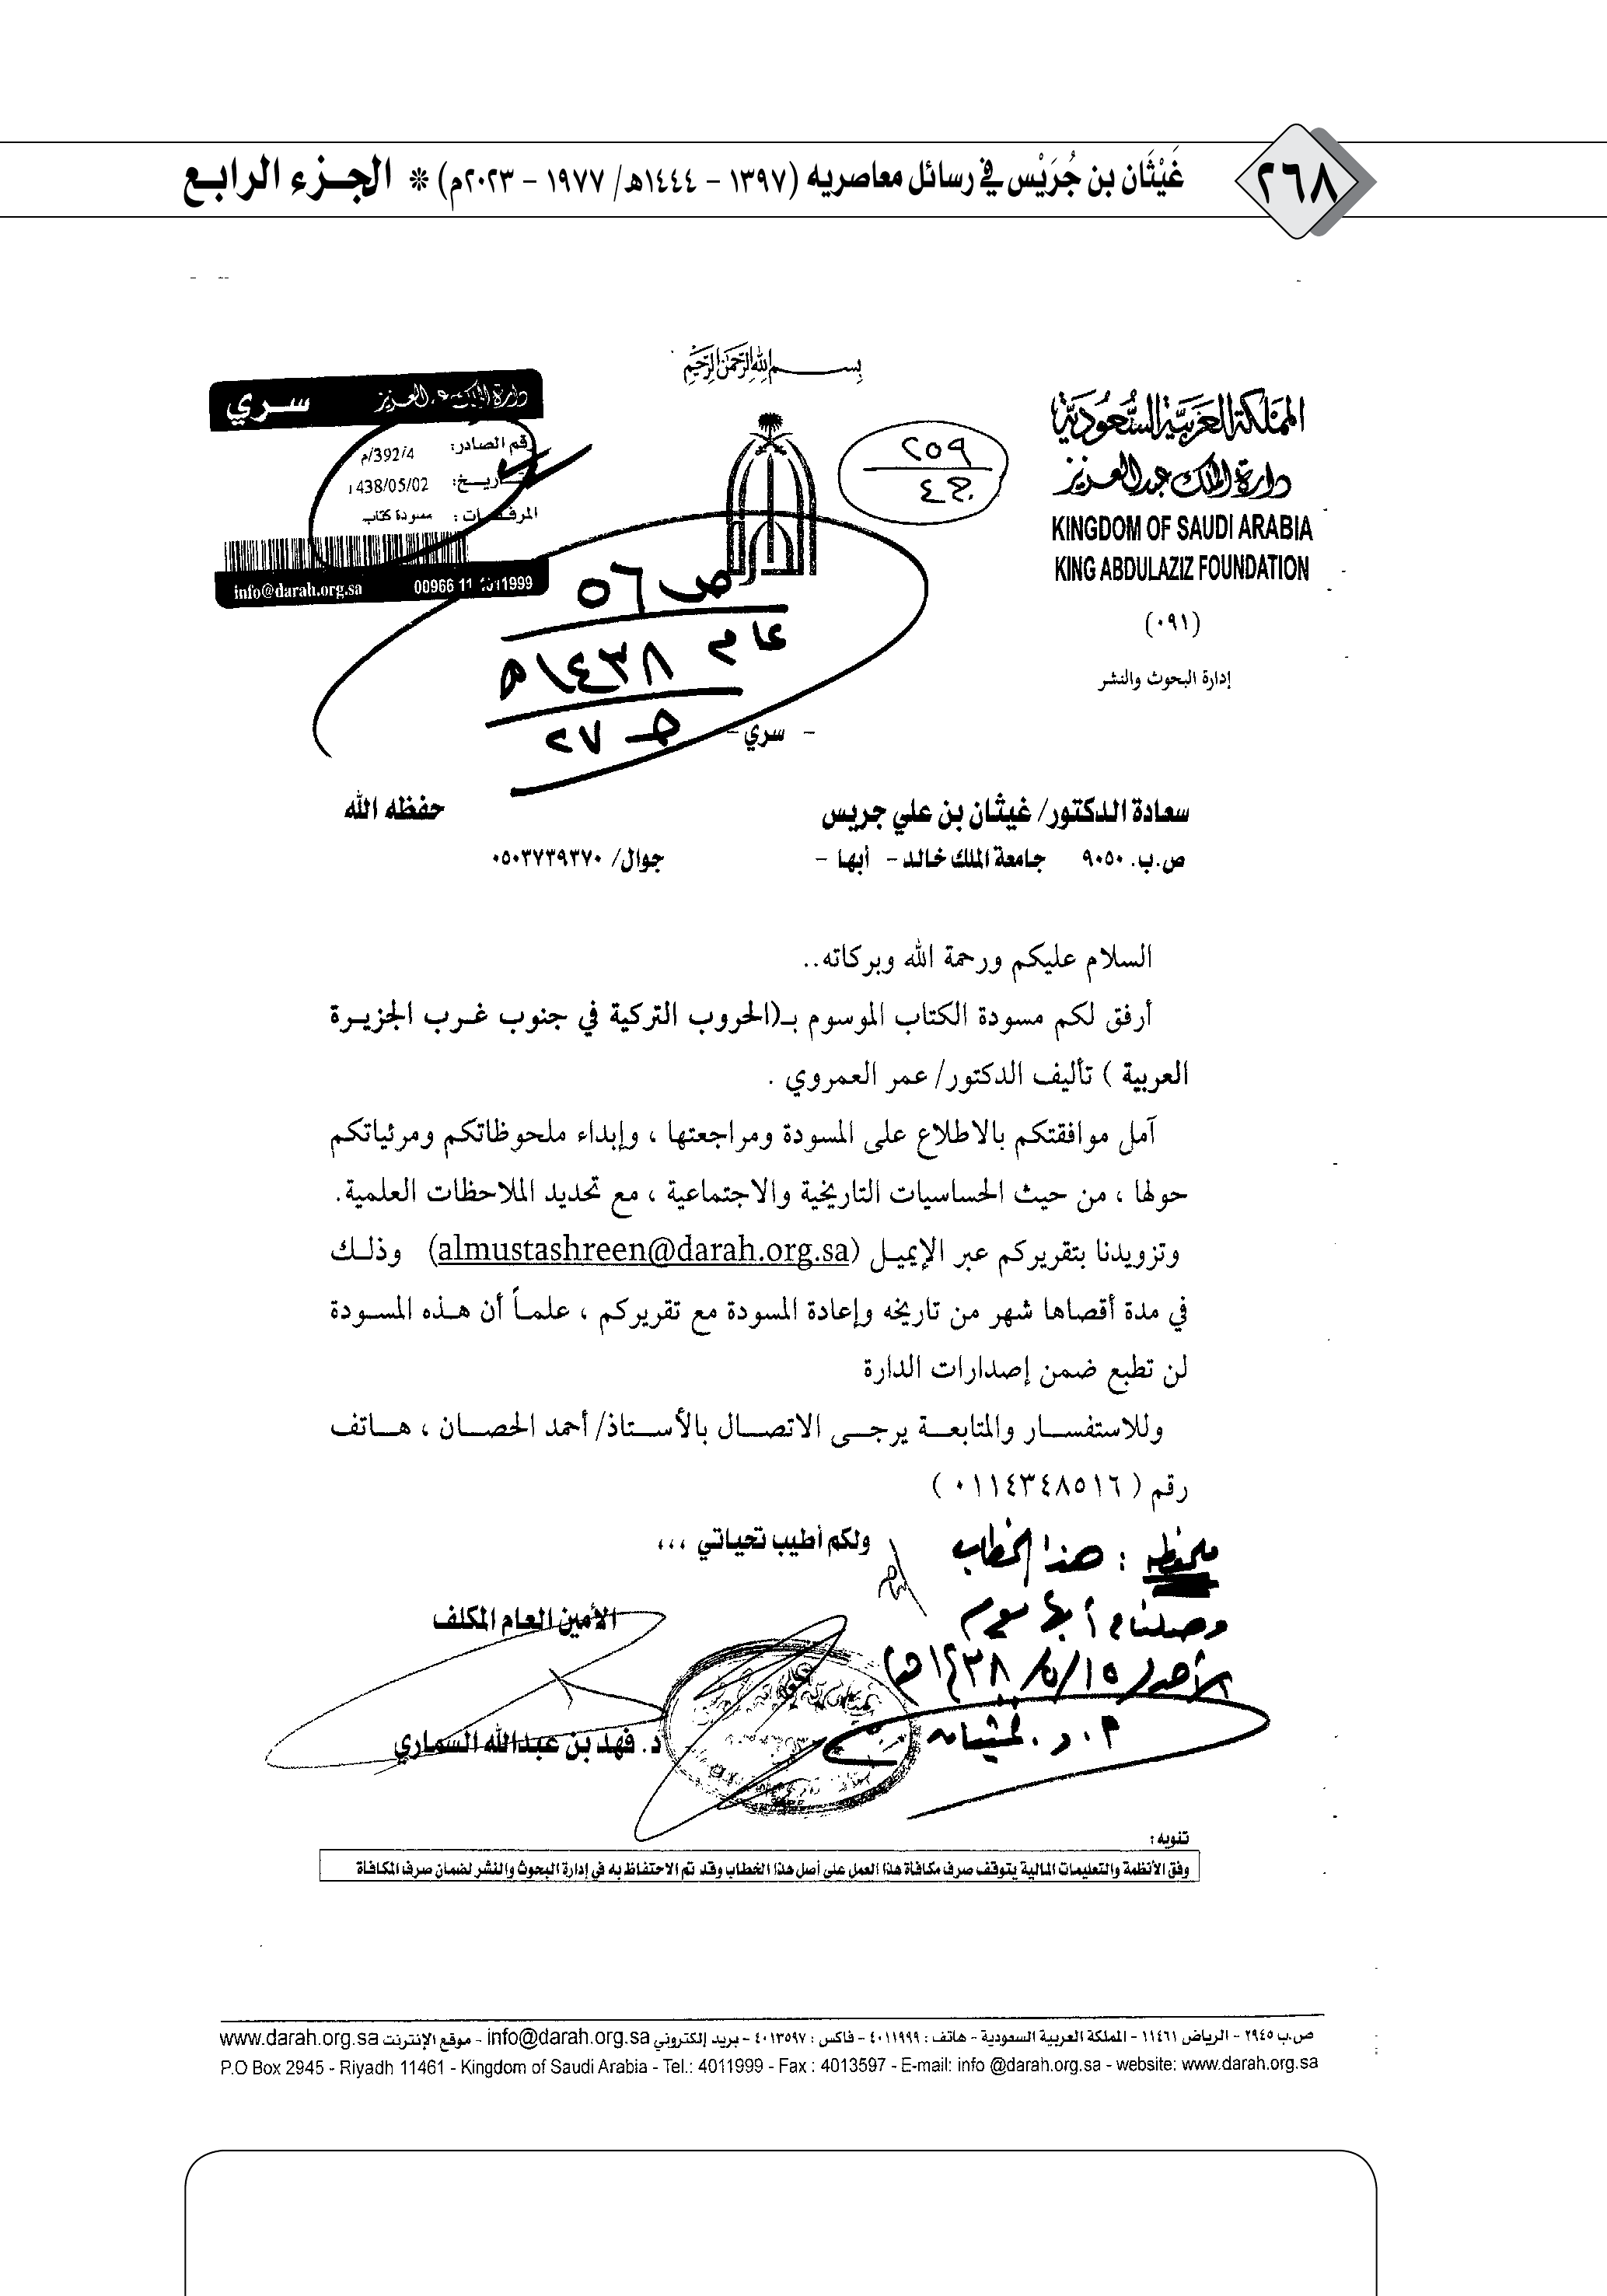 ٢٦٨
غَيْثَان بن جُرَيْس في رسائل معاصريه (١٣٩٧ - ١٤٤٤هـ/ ١٩٧٧ - ٢٠٢٣م) * الجزء الرابع
بسم الله الرحمن الرحيم
المملكة العربية السعودية
دارة الملك عبدالعزيز
KINGDOM OF SAUDI ARABIA
KING ABDULAZIZ FOUNDATION
(٠٩١)
إدارة البحوث والنشر
٢٥٩
ج ٤
دارة الملك عبدالعزيز سري
رقم الصادر: 392/4/م
التاريخ: 1438/05/02
المرفقات: مسودة كتاب
info@darah.org.sa 00966 11
ص ٥٦
عام ١٤٣٨هـ
جـ ٢٧
- سري -
سعادة الدكتور/ غيثان بن علي جريس حفظه الله
ص.ب. ٩٠٥٠ جامعة الملك خالد - أبها - جوال/ ٠٥٠٣٧٣٩٣٧٠
السلام عليكم ورحمة الله وبركاته..
أرفق لكم مسودة الكتاب الموسوم بـ(الحروب التركية في جنوب غرب الجزيرة
العربية ) تأليف الدكتور/ عمر العمروي .
آمل موافقتكم بالاطلاع على المسودة ومراجعتها ، وإبداء ملحوظاتكم ومرئياتكم
حولها ، من حيث الحساسيات التاريخية والاجتماعية ، مع تحديد الملاحظات العلمية.
وتزويدنا بتقريركم عبر الإيميل (almustashreen@darah.org.sa) وذلك
في مدة أقصاها شهر من تاريخه وإعادة المسودة مع تقريركم ، علماً أن هذه المسودة
لن تطبع ضمن إصدارات الدارة
وللاستفسار والمتابعة يرجى الاتصال بالأستاذ/ أحمد الحصان ، هاتف
رقم ( ٠١١٤٣٤٨٥١٦ )
ولكم أطيب تحياتي ،،،
الأمين العام المكلف
د. فهد بن عبدالله السماري
ملحوظة : هذا الخطاب
وصلنا في أبها يوم
الأحد (١٥/٥/١٤٣٨هـ)
أ.د. غيثان
تنويه :
وفق الأنظمة والتعليمات المالية يتوقف صرف مكافأة هذا العمل على أصل هذا الخطاب وقد تم الاحتفاظ به في إدارة البحوث والنشر لضمان صرف المكافأة
ص.ب ٢٩٤٥ - الرياض ١١٤٦١ - المملكة العربية السعودية - هاتف : ٤٠١١٩٩٩ - فاكس : ٤٠١٣٥٩٧ - بريد إلكتروني info@darah.org.sa - موقع الإنترنت www.darah.org.sa
P.O Box 2945 - Riyadh 11461 - Kingdom of Saudi Arabia - Tel.: 4011999 - Fax : 4013597 - E-mail: info @darah.org.sa - website: www.darah.org.sa